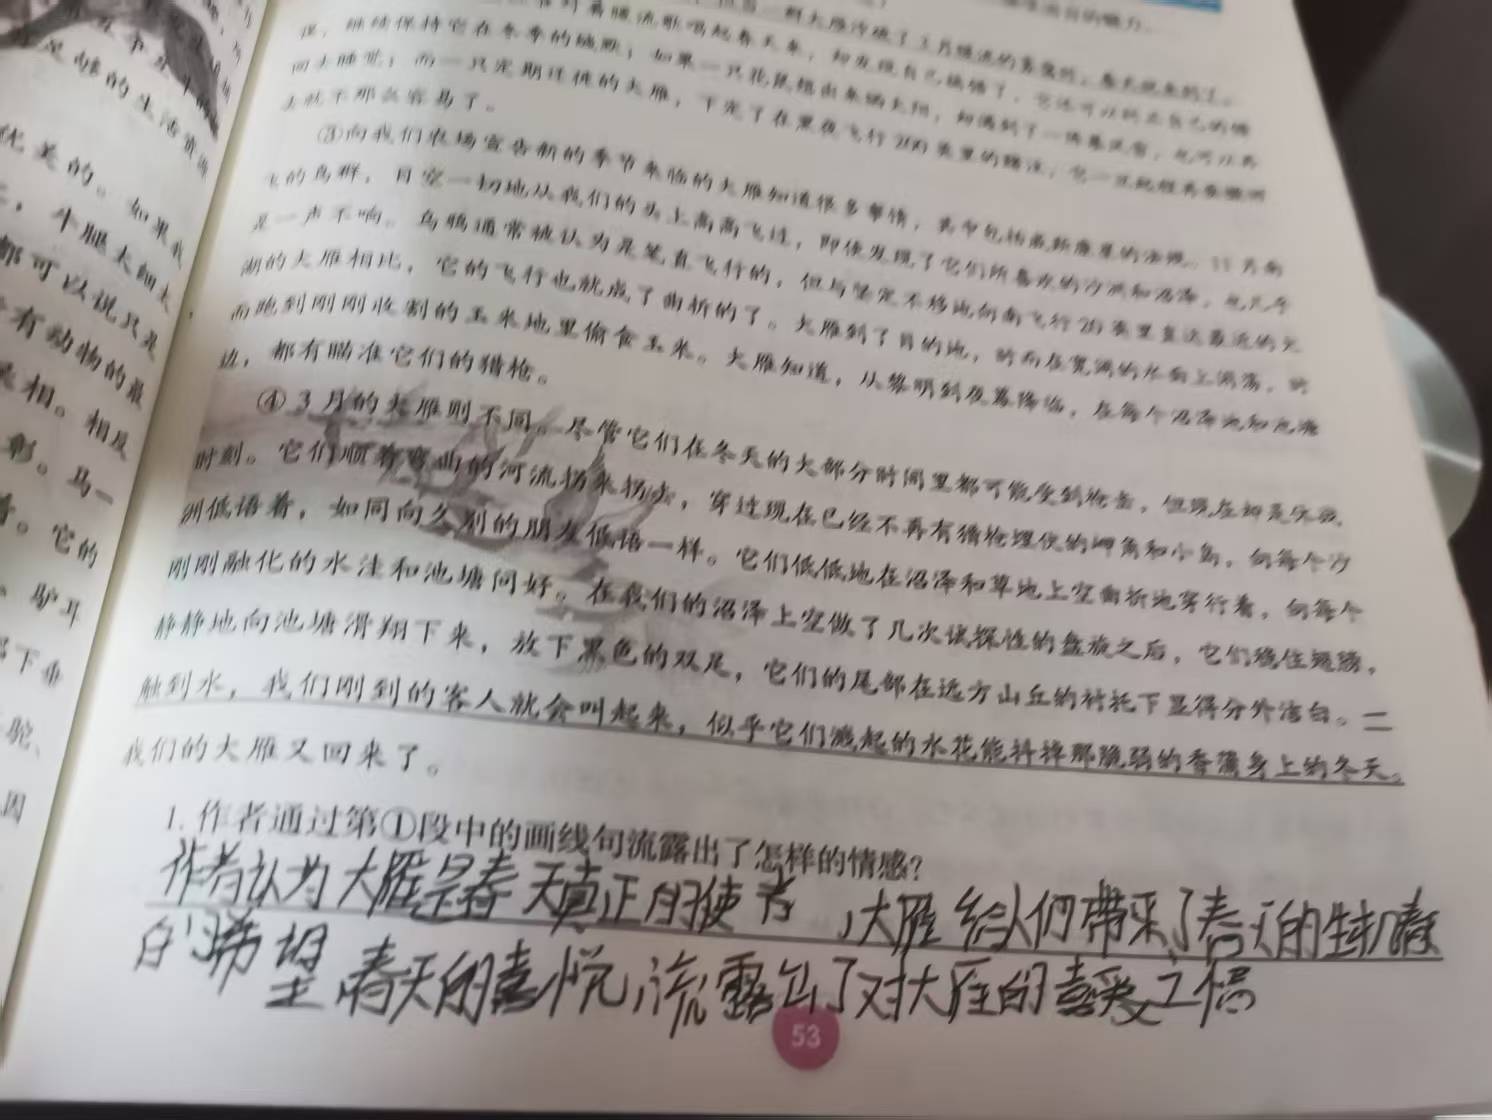 争
的生活资源
优美的。如果我
牛腿太细太
都可以说只是
有动物的最
相。相反
彰。马一
着。它的
驴耳
部下垂
驼、
因
一群大雁冲破了3月暖流的雾霭时，春天就来到了。
暖流歌唱起春天来，却发现自己搞错了，它还可以纠正自己的错
误，继续保持它在冬季的缄默；如果一只花鼠想出来晒太阳，却遇到了一阵暴风雪，也可以再
回去睡觉；而一只定期迁徙的大雁，下定了在黑夜飞行200英里的赌注，它一旦起程再要撤回
去就不那么容易了。
③向我们农场宣告新的季节来临的大雁知道很多事情，其中包括威斯康星的法规。11月南
飞的鸟群，目空一切地从我们的头上高高飞过，即使发现了它们所喜欢的沙滩和沼泽，也几乎
是一声不响。乌鸦通常被认为是笔直飞行的，但与坚定不移地向南飞行20英里直达最近的大
湖的大雁相比，它的飞行也就成了曲折的了。大雁到了目的地，时而在宽阔的水面上闲荡，时
而跑到刚刚收割的玉米地里偷食玉米。大雁知道，从黎明到夜幕降临，在每个沼泽地和池塘
边，都有瞄准它们的猎枪。
④3月的大雁则不同。尽管它们在冬天的大部分时间里都可能受到枪击，但现在却是休战
时刻。它们顺着弯曲的河流拐来拐去，穿过现在已经不再有猎枪埋伏的岬角和小岛，向每个沙
洲低语着，如同向久别的朋友低语一样。它们低低地在沼泽和草地上空曲折地穿行着，向每个
刚刚融化的水洼和池塘问好。在我们的沼泽上空做了几次试探性的盘旋之后，它们稳住翅膀，
静静地向池塘滑翔下来，放下黑色的双足，它们的尾部在远方山丘的衬托下显得分外洁白。一
触到水，我们刚到的客人就会叫起来，似乎它们溅起的水花能抖掉那脆弱的香蒲身上的冬天。
我们的大雁又回来了。
1. 作者通过第①段中的画线句流露出了怎样的情感？
作者认为大雁是春天真正的使者，大雁给人们带来了春天的生机，春
的希望，春天的喜悦，流露出了对大雁的喜爱之情
53